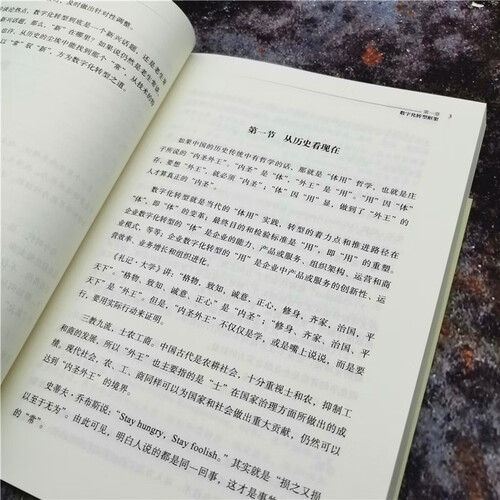 及时做出针对性调整。
数字化转型到底是一个新兴话题,还是老生
新兴话题,那么,“新”在哪里?如果说仍然是老生常谈,
也许,从历史的尘埃中能找到那个“常”,从技术的
以“常”驭“新”,方为数字化转型之道。
第一章
数字化转型框架
3
第一节 从历史看现在
如果中国的历史传统中有哲学的话,那就是“体用”哲学,也就是庄
子所说的“内圣外王”。“内圣”是“体”,“外王”是“用”。“用”因“体”
存,要想“外王”,就必须“内圣”;“体”因“用”显,做到了“外王”的
人才算真正的“内圣”。
数字化转型就是当代的“体用”实践,转型的着力点和推进路径在
“体”,即“体”的变革;最终目的和检验标准是“用”,即“用”的重塑。
企业数字化转型的“体”是企业的能力、产品或服务、组织架构、运营和商
业模式,等等;企业数字化转型的“用”是企业中产品或服务的创新性、运
营效率、业务增长和组织进化。
《礼记·大学》讲,“格物,致知,诚意,正心,修身、齐家,治国,平
天下”。“格物,致知,诚意,正心”是“内圣”;“修身、齐家,治国,平
天下”是“外王”。但是,“内圣外王”不仅仅是学,或是嘴上说说,而是要
行,要用实际行动来证明。
三教九流,士农工商。中国古代是农耕社会,十分重视士和农,抑制工
和商的发展,所以“外王”也主要指的是“士”在国家治理方面所做出的成
绩。现代社会,农、工、商同样可以为国家和社会做出重大贡献,仍然可以
达到“内圣外王”的境界。
史蒂夫·乔布斯说:“Stay hungry, Stay foolish.”其实就是“损之又损
以至于无为”。由此可见,明白人说的都是同一回事,这才是事物
的“常”。